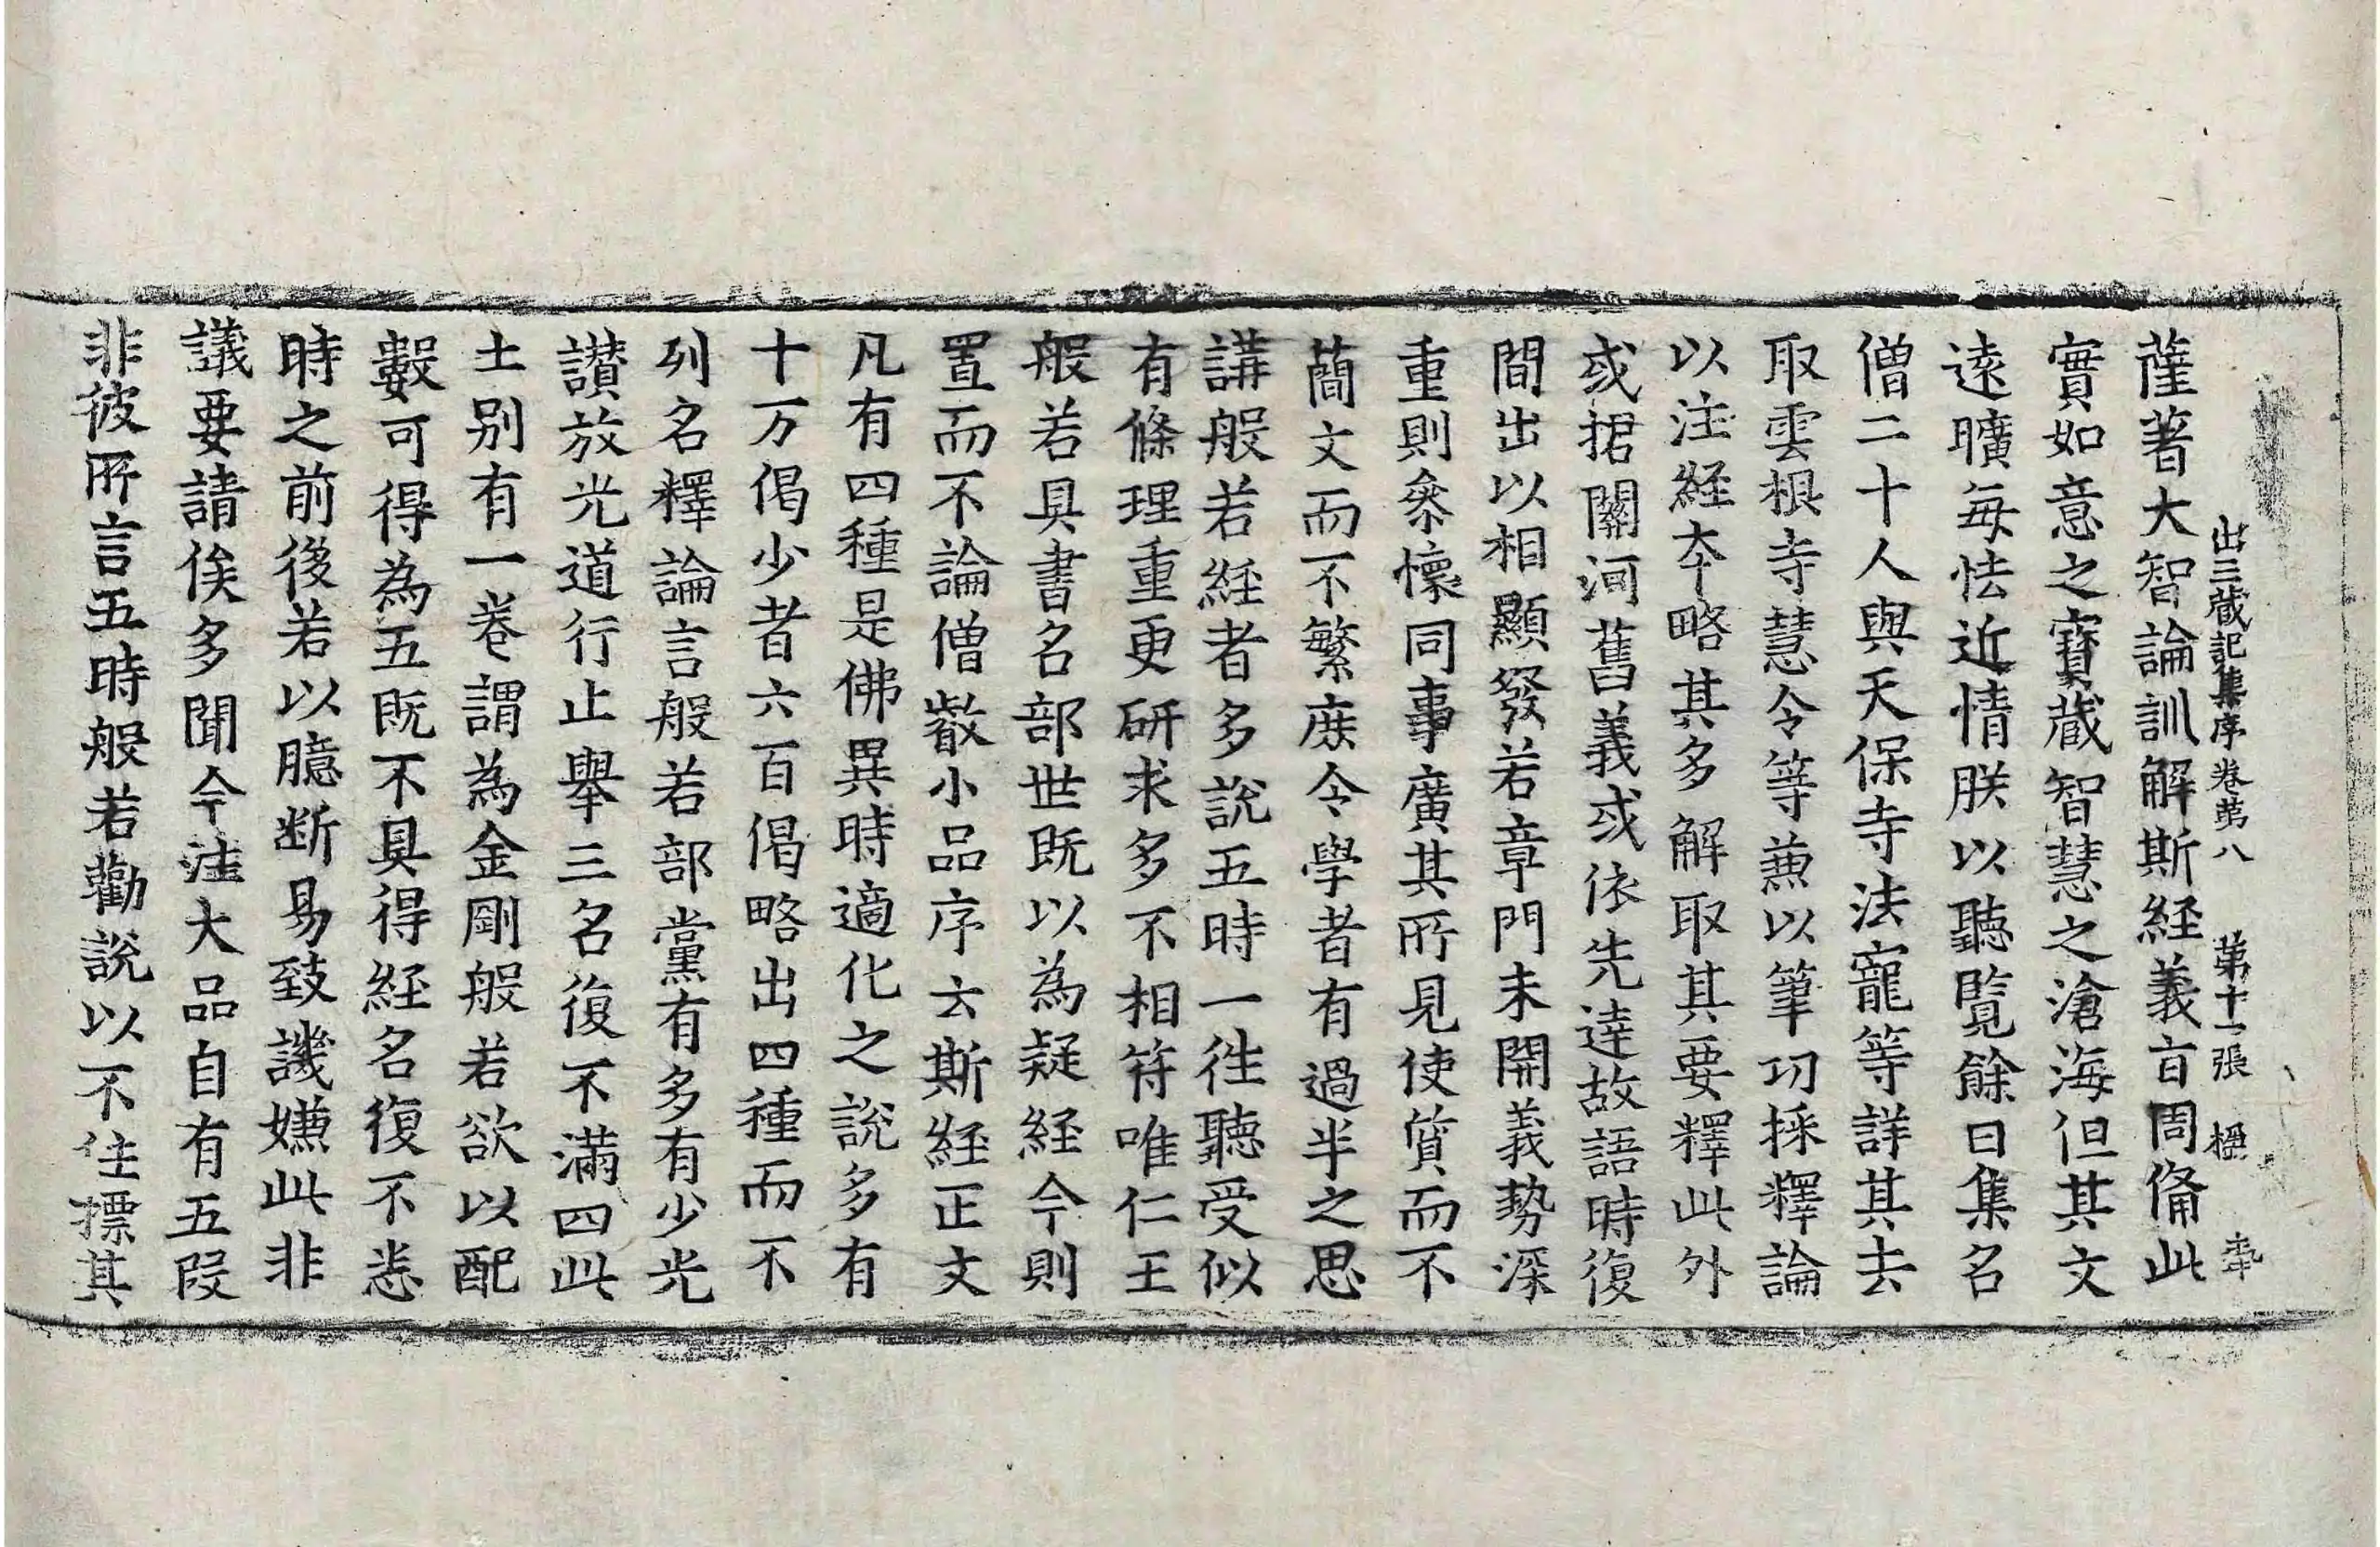 出三藏記集序卷苐八 苐十一張
薩著大智論訓解斯経義旨周俻此
實如意之寶蔵智慧之滄海但其文
逺曠每怯近情朕以聽覽餘日集名
僧二十人與天保寺法寵等詳其去
取雲根寺慧令等蕙以筆功採釋論
以注経夲略其多解取其要釋此外
或捃關河舊義或依先達故語時復
間出以相顯發若章門未開義勢深
重則叅懷同事廣其所見使質而不
蕳文而不繁庶令學者有過半之思
講般若経者多說五時一往聽受似
有條理重更研求多不相符唯仁王
般若具書名部世既以為疑経今則
置而不論僧叡小品序云斯経正文
凡有四種是佛異時適化之說多有
十万偈少者六百偈略出四種而不
列名釋論言般若部黨有多有少光
讃放光道行止舉三名復不滿四此
土別有一卷謂為金剛般若欲以配
數可得為五既不具得経名復不悉
時之前後若以臆断易致譏嫌此非
議要請俟多聞今注大品自有五段
非彼所言五時般若勸說以不住標其